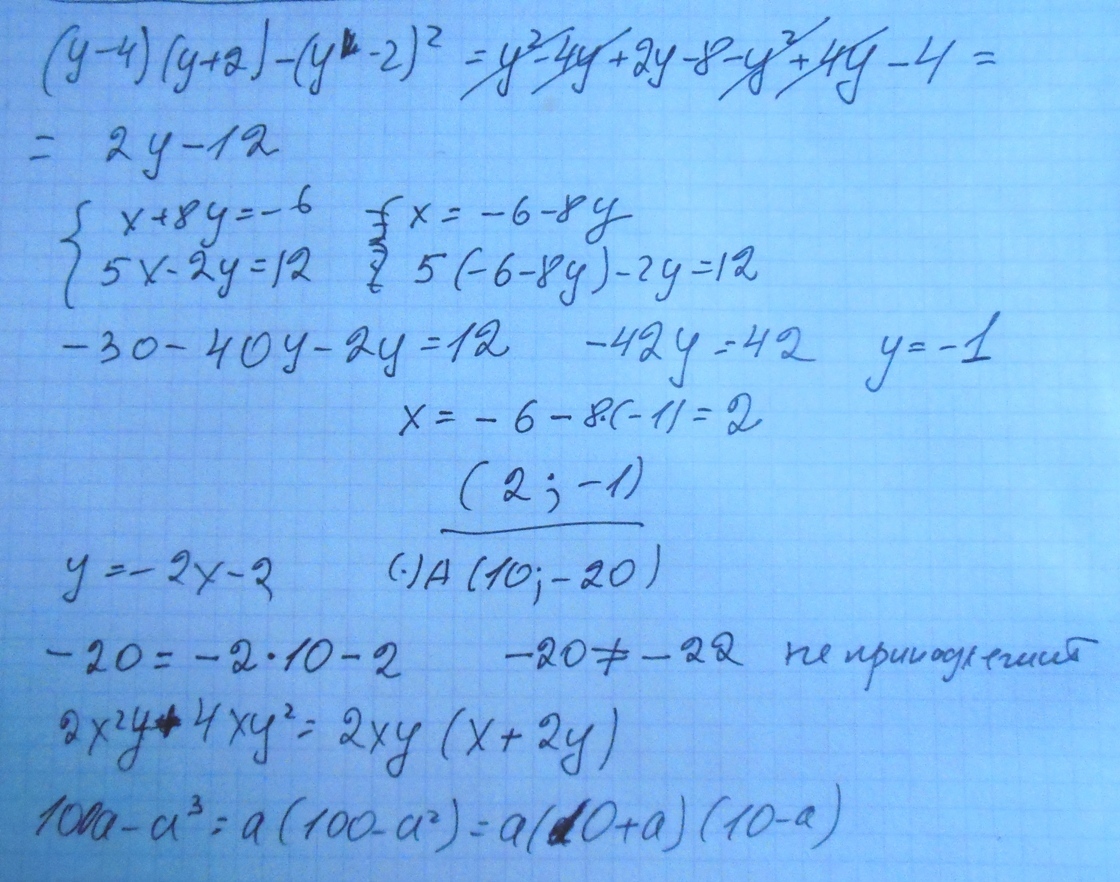 (y-4)(y+2)-(y-2)² = y²-4y+2y-8-y²+4y-4 =
= 2y-12
{ x+8y=-6 { x=-6-8y
5x-2y=12 5(-6-8y)-2y=12
-30-40y-2y=12 -42y=42 y=-1
x=-6-8·(-1)=2
(2;-1)
y=-2x-2 (·)A(10;-20)
-20=-2·10-2 -20≠-22 не принадлежит
2x²y+4xy²=2xy(x+2y)
100a-a³=a(100-a²)=a(10+a)(10-a)